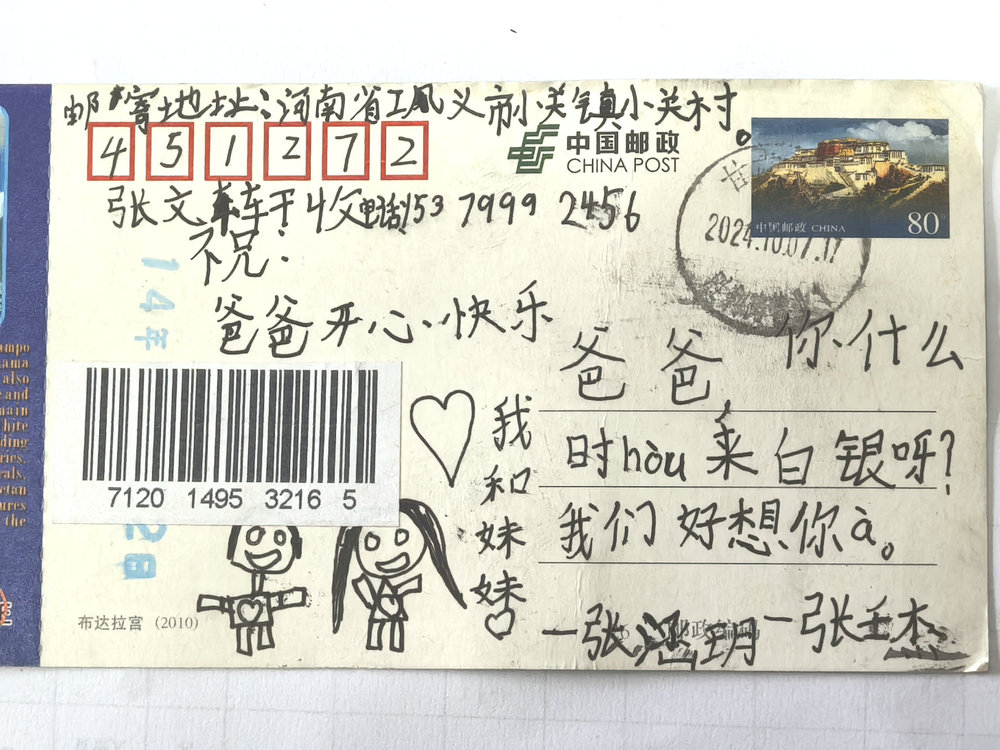 邮寄地址:河南省巩义市小关镇小关村。
451272
中国邮政
CHINA POST
张文 收电话153 7999 2456
中国邮政 CHINA
80
2024.10.07.17
祝:
爸爸开心、快乐
14年
2日
7120 1495 3216 5
我和妹妹
爸爸你什么
时hòu来白银呀?
我们好想你à。
一张 玥一张壬杰
邮政编码
布达拉宫 (2010)
ampo
hama
also
and
main
hite
ding
ries.
rals,
etan
ures
the